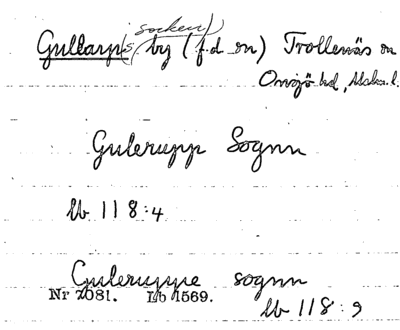 socken
Gullarp(s) by (f.d. sn) Trollenäs sn
Onsjö hd, Malm. l.
Gulerupp Sognn
lb 118:4
Guleruppe sognn
Nr 7081. Lb 1569.
lb 118:9